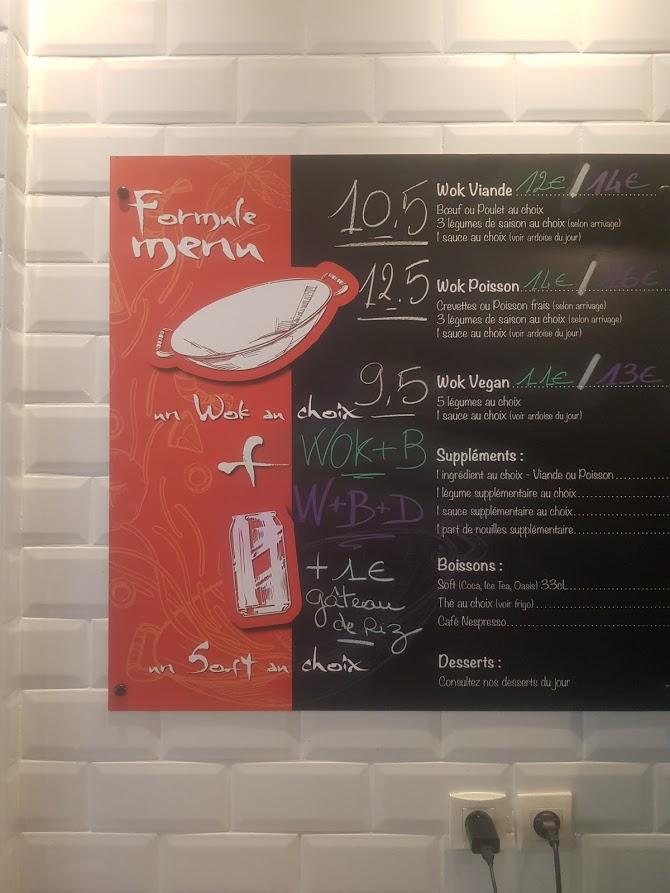 Formule
menu
un Wok au choix
+
un Soft au choix
10,5
12.5
9,5
WOK+B
W+B+D
+ 1€
gâteau
de Riz
Wok Viande 12€ / 14€
Bœuf ou Poulet au choix
3 légumes de saison au choix (selon arrivage)
1 sauce au choix (voir ardoise du jour)
Wok Poisson 14€ / 16€
Crevettes ou Poisson frais (selon arrivage)
3 légumes de saison au choix (selon arrivage)
1 sauce au choix (voir ardoise du jour)
Wok Vegan 11€ / 13€
5 légumes au choix
1 sauce au choix (voir ardoise du jour)
Suppléments :
1 ingrédient au choix - Viande ou Poisson
1 légume supplémentaire au choix
1 sauce supplémentaire au choix
1 part de nouilles supplémentaire
Boissons :
Soft (Coca, Ice Tea, Oasis) 33cL
Thé au choix (voir frigo)
Café Nespresso
Desserts :
Consultez nos desserts du jour